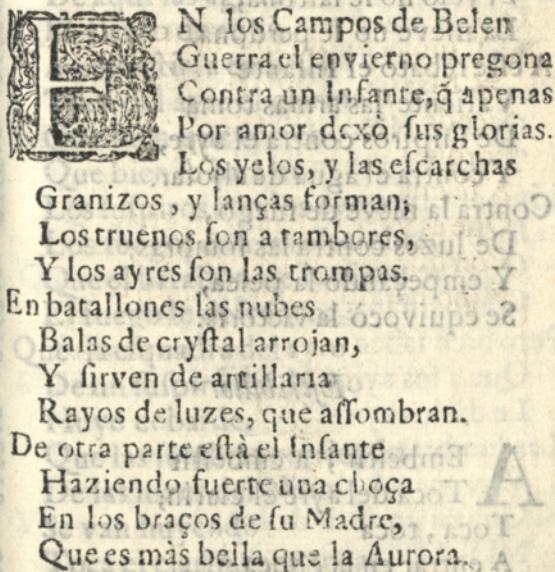 EN los Campos de Belen
Guerra el envierno pregona
Contra un Infante, q̃ apenas
Por amor dexò ſus glorias.
Los yelos, y las eſcarchas
Granizos, y lanças forman;
Los truenos ſon atambores,
Y los ayres ſon las trompas.
En batallones las nubes
Balas de cryſtal arrojan,
Y ſirven de artillaria
Rayos de luzes, que aſſombran.
De otra parte eſtà el Infante
Haziendo fuerte una choça
En los braços de ſu Madre,
Que es màs bella que la Aurora.